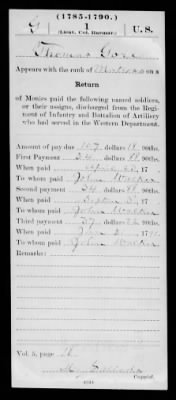 (1785-1790.)
G 1 U. S.
(Lieut. Col. Harmar.)
Thomas Gore
Appears with the rank of on a
Return
of Monies paid the following named soldiers,
or their assigns, discharged from the Regi-
ment of Infantry and Battalion of Artillery
who had served in the Western Department.
Amount of pay due 107 dollars 18 90ths.
First Payment 34 dollars 88 90ths.
When paid 17
To whom paid John Walker
Second payment 34 dollars 88 90ths.
When paid 17
To whom paid John Walker
Third payment 37 dollars 90ths.
When paid 17
To whom paid John Walker
Remarks:
Vol. 5, page 18
Copyist.